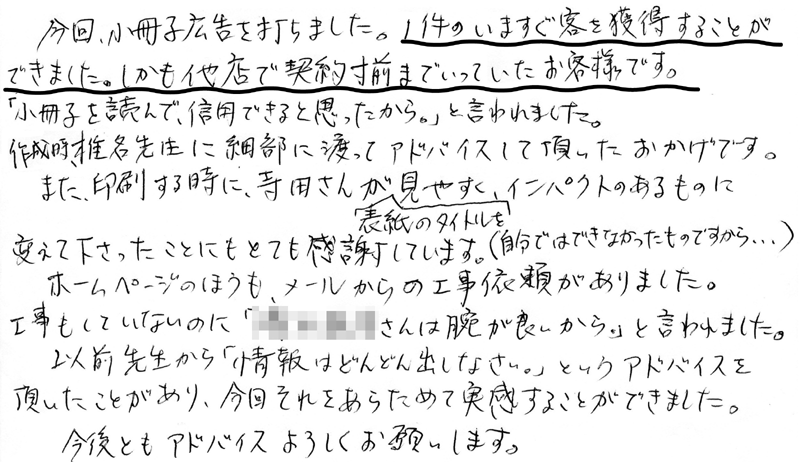 今回、小冊子広告を打ちました。1件のいますぐ客を獲得することが
できました。しかも他店で契約寸前までいっていたお客様です。
「小冊子を読んで、信用できると思ったから。」と言われました。
作成時、椎名先生に細部に渡ってアドバイスして頂いたおかげです。
また、印刷する時に、寺田さんが見やすく、インパクトのあるものに
表紙のタイトルを
変えて下さったことにもとても感謝しています。(自分ではできなかったものですから...)
ホームページのほうも、メールからの工事依頼がありました。
工事もしていないのに「 さんは腕が良いから。」と言われました。
以前先生から「情報はどんどん出しなさい。」というアドバイスを
頂いたことがあり、今回それをあらためて実感することができました。
今後ともアドバイスよろしくお願いします。